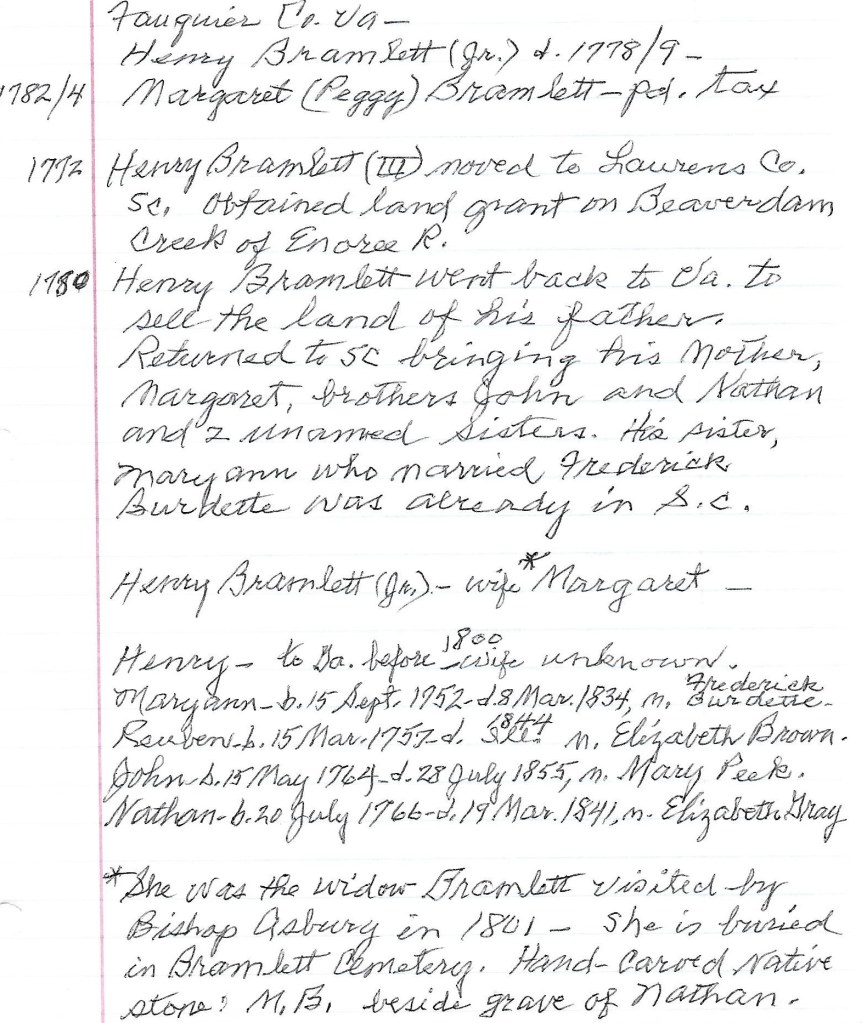 Fauquier Co. Va —
Henry Bramlett (Jr.) d. 1778/9 —
1782/4 Margaret (Peggy) Bramlett — pd. tax
1772 Henry Bramlett (III) moved to Laurens Co.
SC. Obtained land grant on Beaverdam
Creek of Enoree R.
1780 Henry Bramlett went back to Va. to
sell the land of his father.
Returned to SC bringing his Mother,
Margaret, brothers John and Nathan
and 2 unamed sisters. His sister,
Maryann who married Frederick
Burdette was already in S.C.
Henry Bramlett (Jr.) — wife * Margaret —
Henry — to Ga. before 1800 — wife unknown.
Maryann — b. 15 Sept. 1752 - d. 8 Mar. 1834, m. Frederick Burdette.
Reuben - b. 15 Mar. 1757 - d. 1844 m. Elizabeth Brown.
John - b. 15 May 1764 - d. 28 July 1855, m. Mary Peek.
Nathan - b. 20 July 1766 - d. 19 Mar. 1841, m. Elizabeth Gray
* She was the widow Bramlett visited by
Bishop Asbury in 1801 — She is buried
in Bramlett Cemetery. Hand-Carved Native
stone: M.B. beside grave of Nathan.